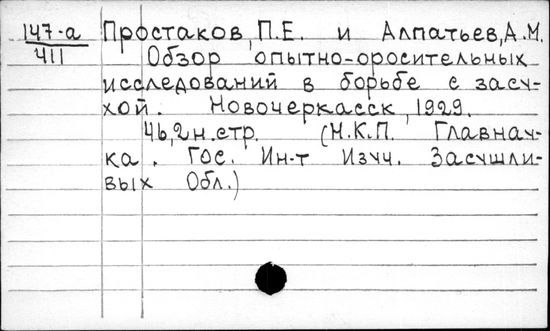 147-а Простаков, П.Е. и Алпатьев, А.М.
411 Обзор опытно-оросительных
исследований в борьбе с засу-
хой. Новочеркасск, 1929.
46, 2 н. стр. (Н.К.П. Главнау-
ка. Гос. Ин-т Изуч. Засушли-
вых Обл.)